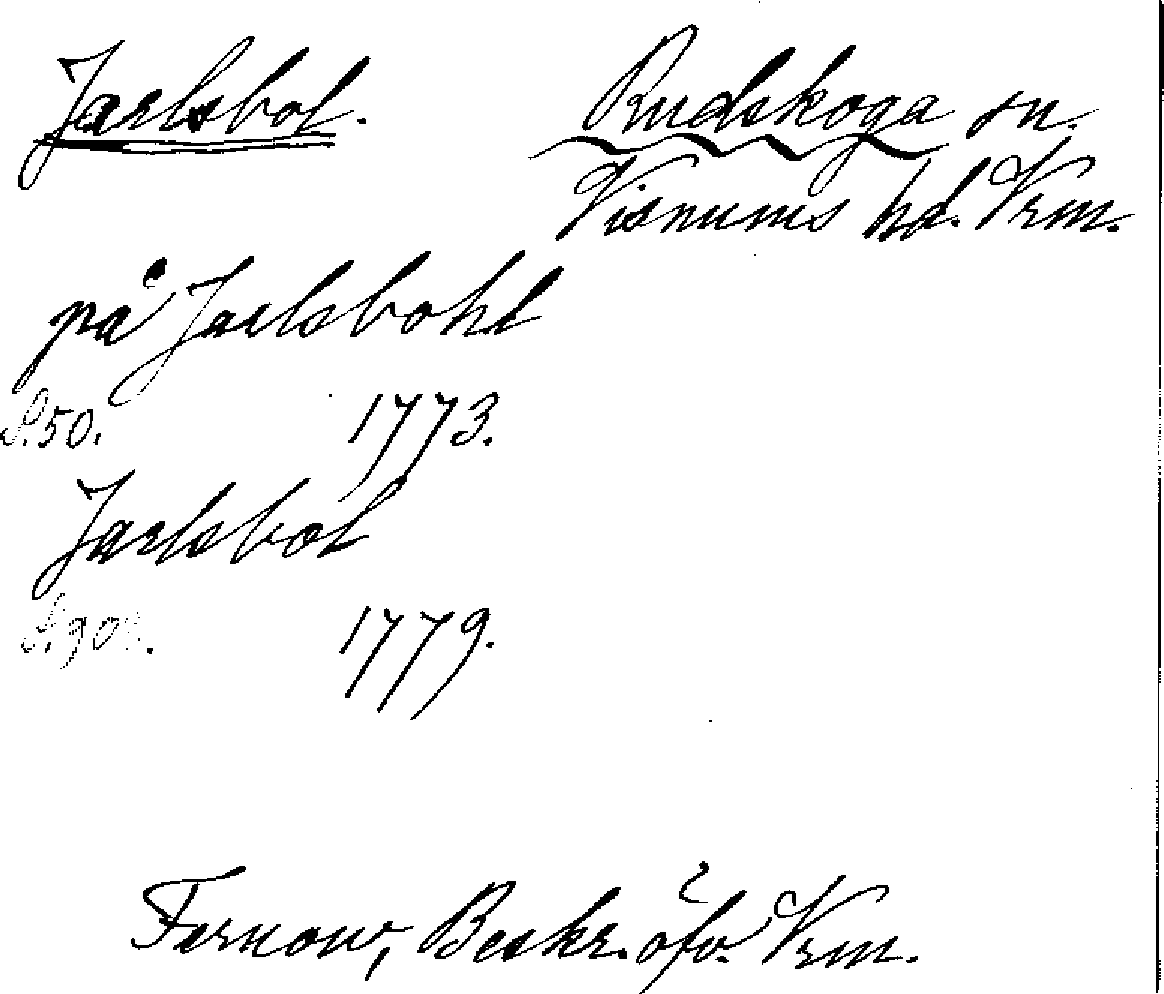 Jarlsbol. Rudskoga sn.
Visnums hd. Vrm.
på Jarlsbohl
S. 50. 1773.
Jarlsbol
1779.
Fernow, Beskr. öfv. Vrm.